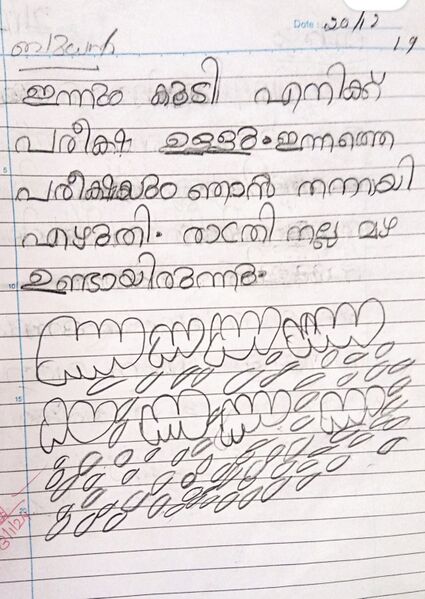 Date : 20/12
19
ബുധൻ
ഇന്നും കൂടി എനിക്ക്
പരീക്ഷ ഉള്ളു. ഇന്നത്തെ
പരീക്ഷയും ഞാൻ നന്നായി
എഴുതി. രാത്രി നല്ല മഴ
ഉണ്ടായിരുന്നു.